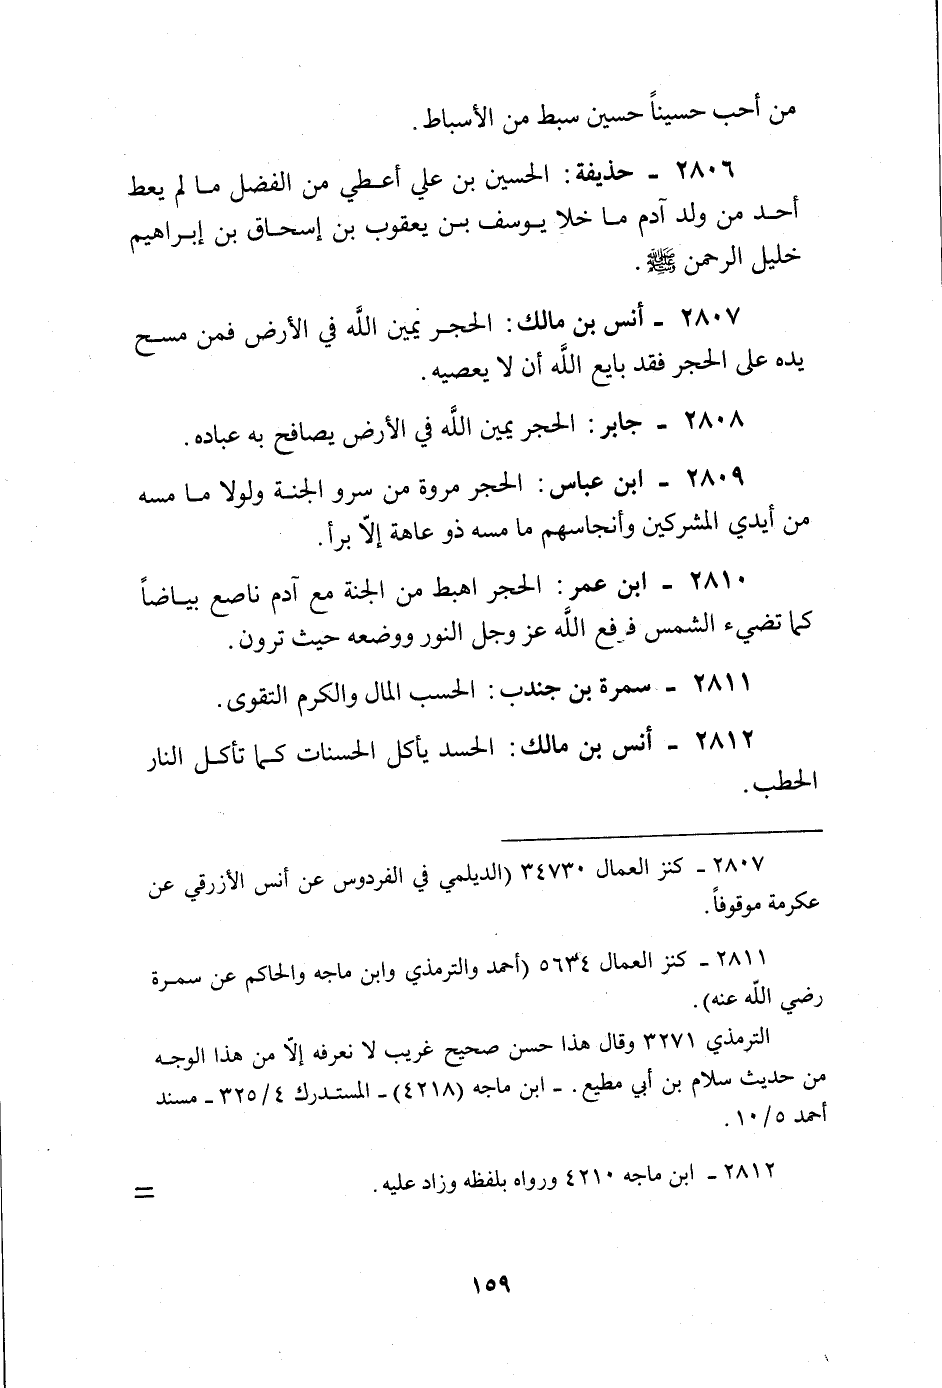 من أحب حسيناً حسين سبط من الأسباط.
٢٨٠٦ ـ حذيفة: الحسين بن علي أعطي من الفضل ما لم يعط
أحد من ولد آدم ما خلا يوسف بن يعقوب بن إسحاق بن إبراهيم
خليل الرحمن ﷺ.
٢٨٠٧ ـ أنس بن مالك: الحجر يمين اللَّه في الأرض فمن مسح
يده على الحجر فقد بايع اللَّه أن لا يعصيه.
٢٨٠٨ ـ جابر: الحجر يمين اللَّه في الأرض يصافح به عباده.
٢٨٠٩ ـ ابن عباس: الحجر مروة من سرو الجنة ولولا ما مسه
من أيدي المشركين وأنجاسهم ما مسه ذو عاهة إلّا برأ.
٢٨١٠ ـ ابن عمر: الحجر اهبط من الجنة مع آدم ناصع بياضاً
كما تضيء الشمس فرفع اللَّه عز وجل النور ووضعه حيث ترون.
٢٨١١ ـ سمرة بن جندب: الحسب المال والكرم التقوى.
٢٨١٢ ـ أنس بن مالك: الحسد يأكل الحسنات كما تأكل النار
الحطب.
٢٨٠٧ ـ كنز العمال ٣٤٧٣٠ (الديلمي في الفردوس عن أنس الأزرقي عن
عكرمة موقوفاً.
٢٨١١ ـ كنز العمال ٥٦٣٤ (أحمد والترمذي وابن ماجه والحاكم عن سمرة
رضي اللّه عنه).
الترمذي ٣٢٧١ وقال هذا حسن صحيح غريب لا نعرفه إلّا من هذا الوجه
من حديث سلام بن أبي مطيع. ـ ابن ماجه (٤٢١٨) ـ المستدرك ٣٢٥/٤ ـ مسند
أحمد ١٠/٥.
٢٨١٢ ـ ابن ماجه ٤٢١٠ ورواه بلفظه وزاد عليه. =
١٥٩